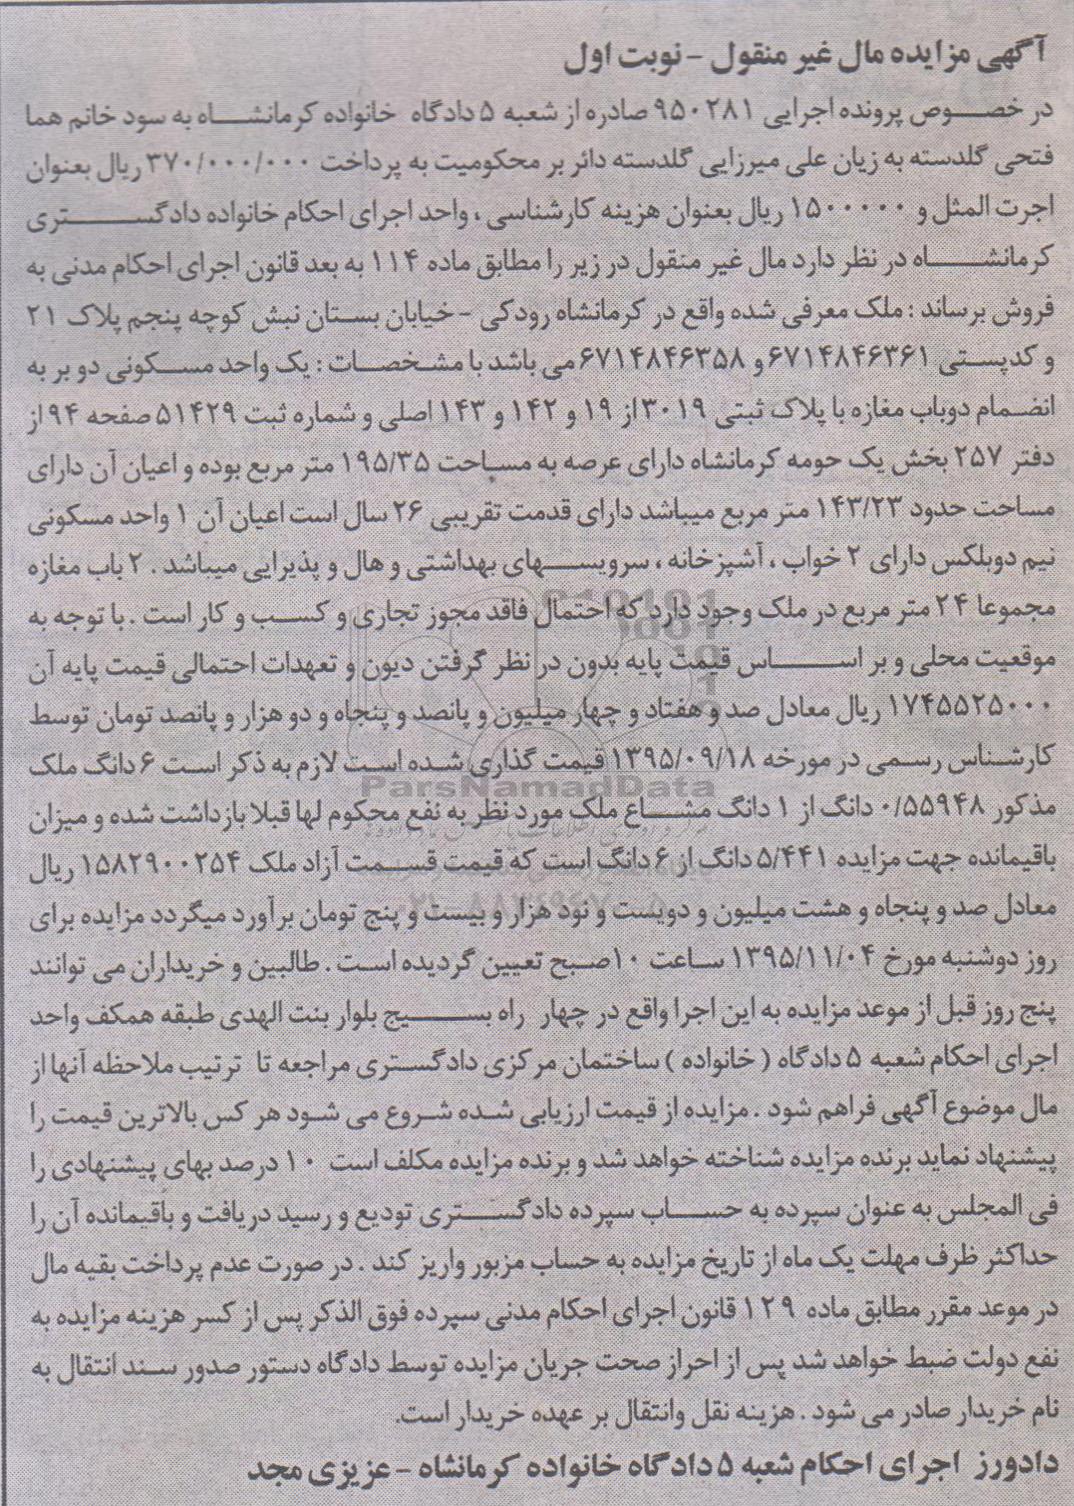 آگهی مزایده مال غیر منقول - نوبت اول
در خصوص پرونده اجرایی ۹۵۰۲۸۱ صادره از شعبه ۵ دادگاه خانواده کرمانشاه به سود خانم هما
فتحی گلدسته به زیان علی میرزایی گلدسته دائر بر محکومیت به پرداخت ۳۷۰/۰۰۰/۰۰۰ ریال بعنوان
اجرت المثل و ۱۵۰۰۰۰۰ ریال بعنوان هزینه کارشناسی ، واحد اجرای احکام خانواده دادگستری
کرمانشاه در نظر دارد مال غیر منقول در زیر را مطابق ماده ۱۱۴ به بعد قانون اجرای احکام مدنی به
فروش برساند : ملک معرفی شده واقع در کرمانشاه رودکی - خیابان بستان نبش کوچه پنجم پلاک ۲۱
و کدپستی ۶۷۱۴۸۴۶۳۶۱ و ۶۷۱۴۸۴۶۳۵۸ می باشد با مشخصات : یک واحد مسکونی دو بر به
انضمام دوباب مغازه با پلاک ثبتی ۳۰۱۹ از ۱۹ و ۱۴۲ و ۱۴۳ اصلی و شماره ثبت ۵۱۴۲۹ صفحه ۹۴ از
دفتر ۲۵۷ بخش یک حومه کرمانشاه دارای عرصه به مساحت ۱۹۵/۳۵ متر مربع بوده و اعیان آن دارای
مساحت حدود ۱۴۳/۲۳ متر مربع میباشد دارای قدمت تقریبی ۲۶ سال است اعیان آن ۱ واحد مسکونی
نیم دوبلکس دارای ۲ خواب ، آشپزخانه ، سرویسهای بهداشتی و هال و پذیرایی میباشد . ۲ باب مغازه
مجموعا ۲۴ متر مربع در ملک وجود دارد که احتمال فاقد مجوز تجاری و کسب و کار است . با توجه به
موقعیت محلی و بر اساس قیمت پایه بدون در نظر گرفتن دیون و تعهدات احتمالی قیمت پایه آن
۱۷۴۵۵۲۵۰۰۰ ریال معادل صد و هفتاد و چهار میلیون و پانصد و پنجاه و دو هزار و پانصد تومان توسط
کارشناس رسمی در مورخه ۱۳۹۵/۰۹/۱۸ قیمت گذاری شده است لازم به ذکر است ۶ دانگ ملک
مذکور ۰/۵۵۹۴۸ دانگ از ۱ دانگ مشاع ملک مورد نظر به نفع محکوم لها قبلا بازداشت شده و میزان
باقیمانده جهت مزایده ۵/۴۴۱ دانگ از ۶ دانگ است که قیمت قسمت آزاد ملک ۱۵۸۲۹۰۰۲۵۴ ریال
معادل صد و پنجاه و هشت میلیون و دویست و نود هزار و بیست و پنج تومان برآورد میگردد مزایده برای
روز دوشنبه مورخ ۱۳۹۵/۱۱/۰۴ ساعت ۱۰ صبح تعیین گردیده است . طالبین و خریداران می توانند
پنج روز قبل از موعد مزایده به این اجرا واقع در چهار راه بسیج بلوار بنت الهدی طبقه همکف واحد
اجرای احکام شعبه ۵ دادگاه ( خانواده ) ساختمان مرکزی دادگستری مراجعه تا ترتیب ملاحظه آنها از
مال موضوع آگهی فراهم شود . مزایده از قیمت ارزیابی شده شروع می شود هر کس بالاترین قیمت را
پیشنهاد نماید برنده مزایده شناخته خواهد شد و برنده مزایده مکلف است ۱۰ درصد بهای پیشنهادی را
فی المجلس به عنوان سپرده به حساب سپرده دادگستری تودیع و رسید دریافت و باقیمانده آن را
حداکثر ظرف مهلت یک ماه از تاریخ مزایده به حساب مزبور واریز کند . در صورت عدم پرداخت بقیه مال
در موعد مقرر مطابق ماده ۱۲۹ قانون اجرای احکام مدنی سپرده فوق الذکر پس از کسر هزینه مزایده به
نفع دولت ضبط خواهد شد پس از احراز صحت جریان مزایده توسط دادگاه دستور صدور سند انتقال به
نام خریدار صادر می شود . هزینه نقل وانتقال بر عهده خریدار است.
دادورز اجرای احکام شعبه ۵ دادگاه خانواده کرمانشاه - عزیزی مجد
ParsNamadData